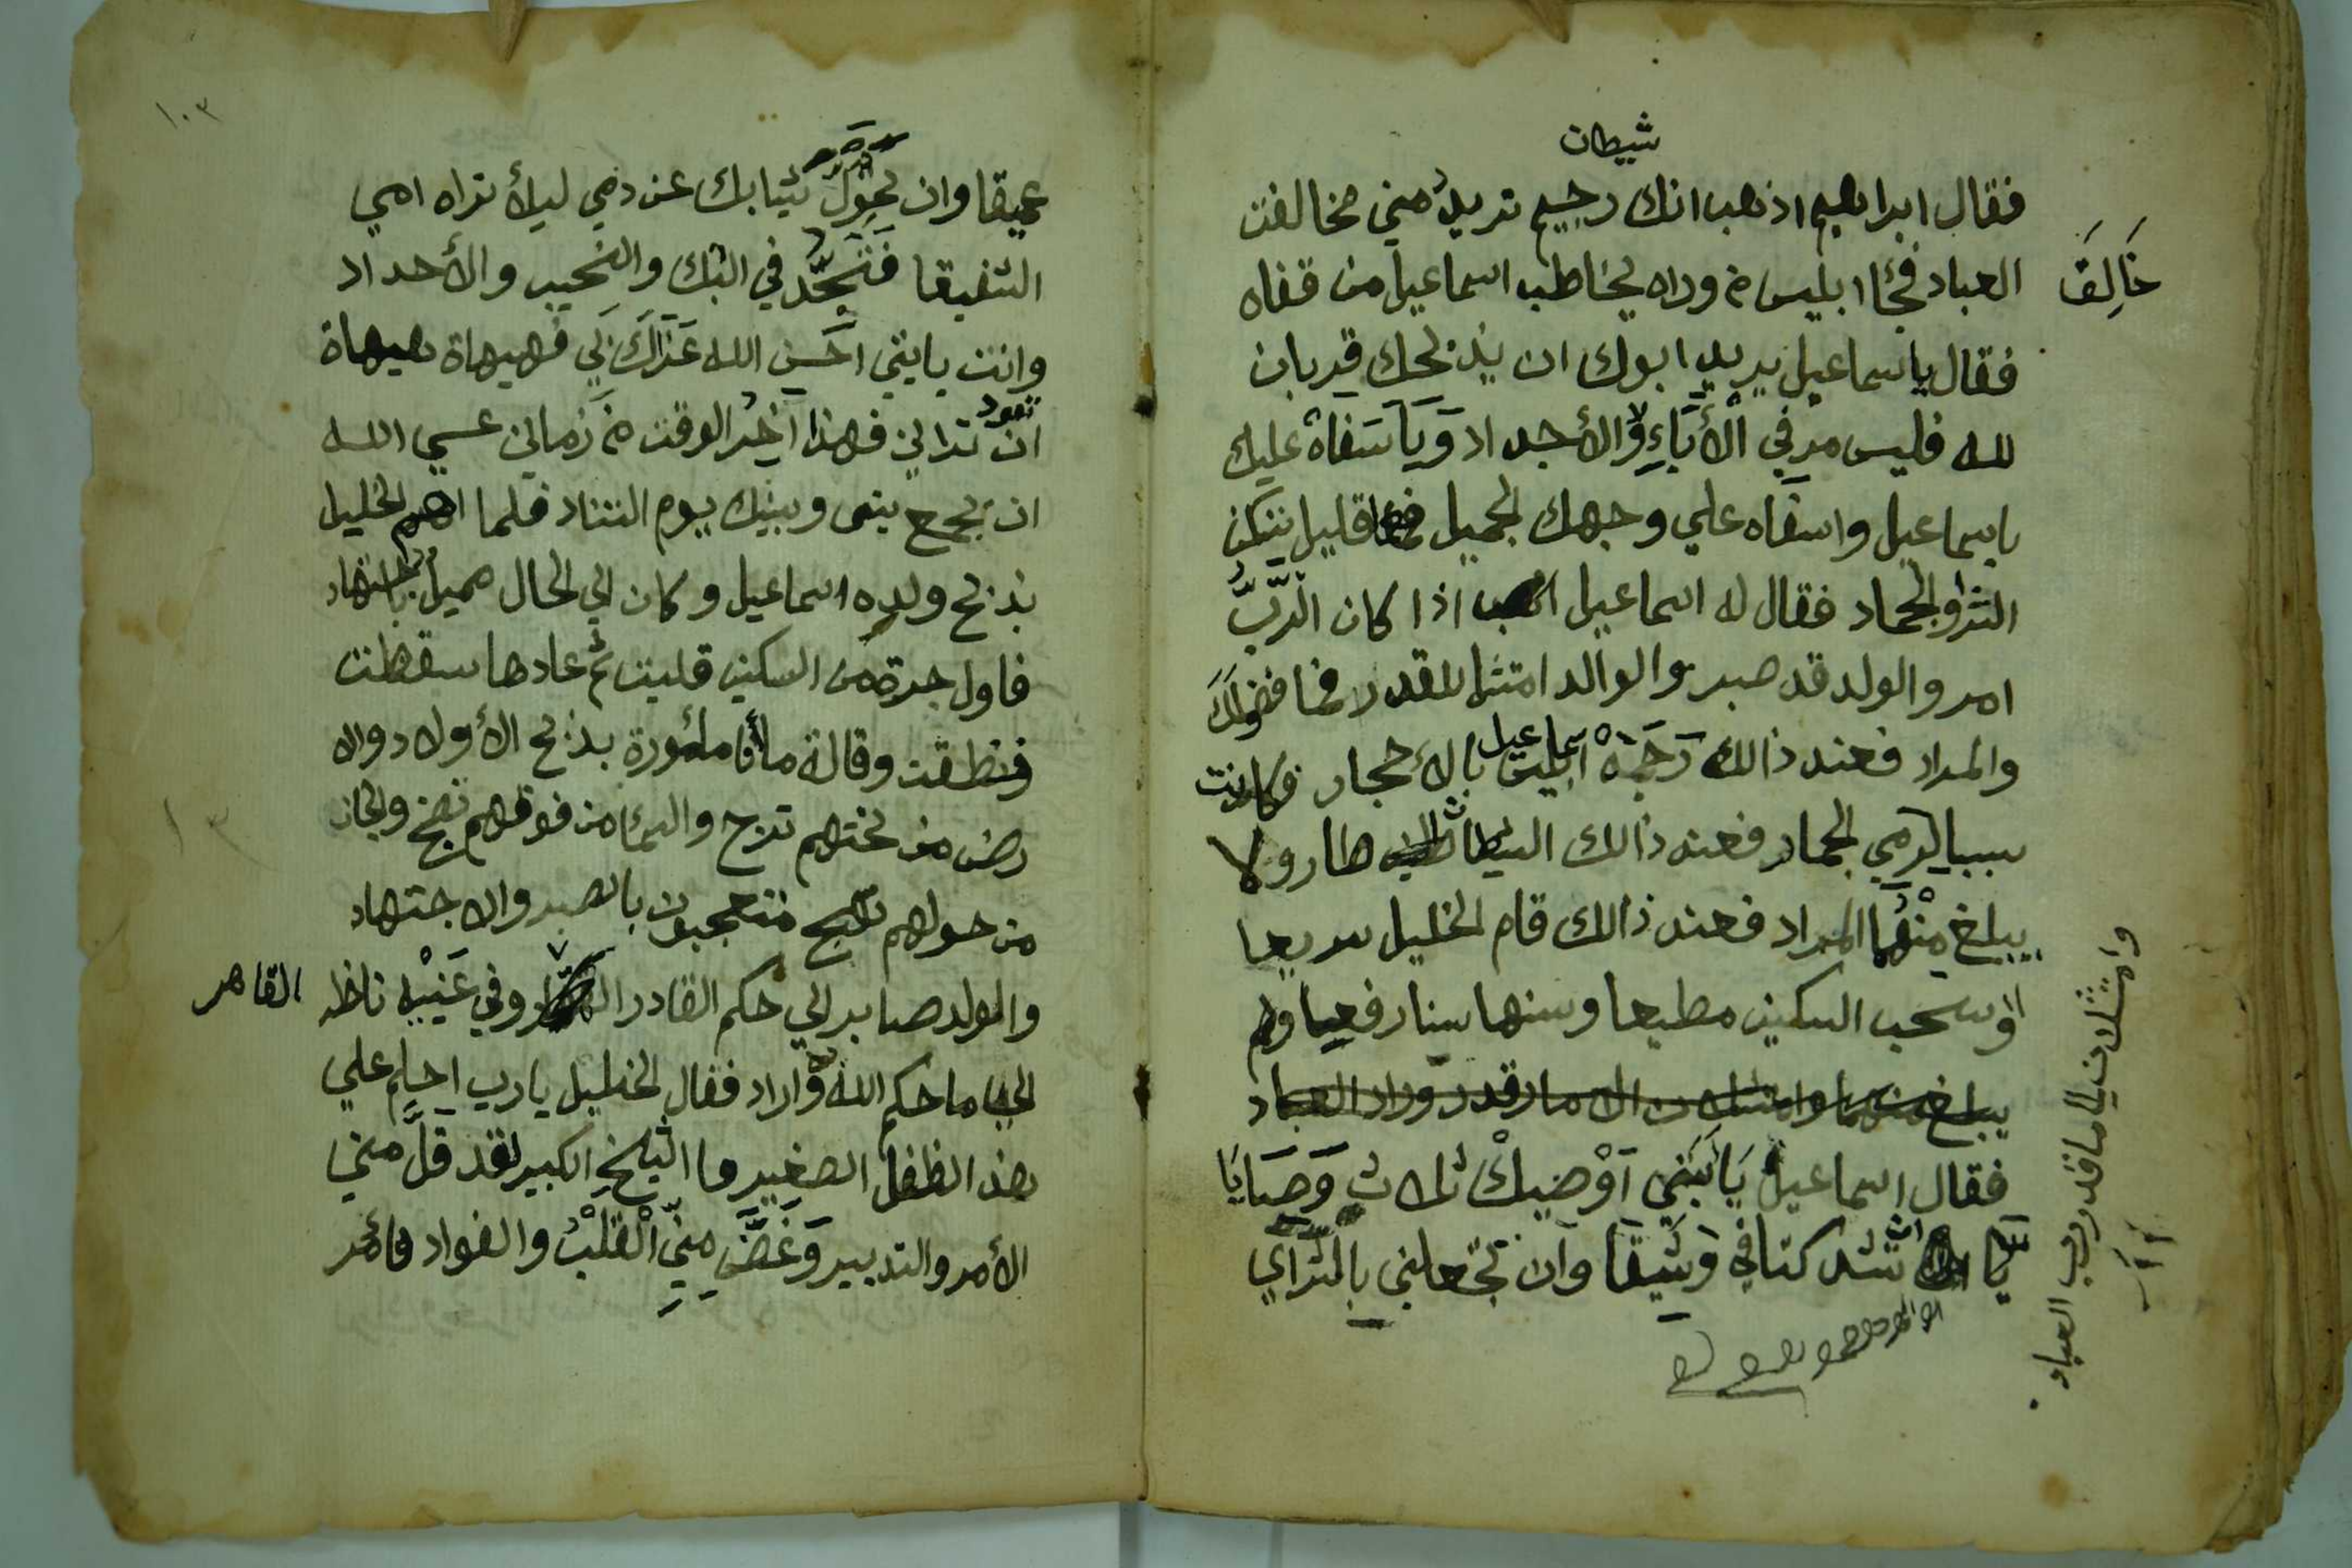 شيطان
فقال ابراهيم اذهب انك رجيم تريد مني مخالفت
خَالِقَ
العباد فجٔا ابليس من وراه يخاطب اسماعيل من قفاه
فقال ياسماعيل يريد ابوك ان يذبحك قربان
لله فليس مر في الأبَاءِ ولا الأجداد وَيَاسَفاهْ عليك
ياسماعيل واسفاه علي وجهك الجميل فعا قليل يسكن
الثرا والجماد فقال له اسماعيل اذا كان الرَّبُّ
امر والولد قد صبر والوالد امتثل للقدر فما فضولَكَ
والمراد فعند ذالك رَجَمَهْ اسماعيل بالأحجار فكانت
سببا لرمي الجمار فعند ذالك الشيطان طار ولا
يبلغ مِنْهُمَا المراد فعند ذالك قام الخليل سريعا
وسحب السكين مطيعا وسنها سنا رفيعا ولم
يبلغ منهما وامتثلان الا ما قدر وراد العباد
وامتثلان الي ما قدر رب العباد
فقال اسماعيل يَا بَنِي اَوْصِيكْ ثلاث وَصَايَا
يَّا ان تشد كتافي وَثِيقَا وَان تجعلني بالثراي
عميقا وان تحِوِلْ ثيابك عن دمي ليلأ تراه امي
الشفيقا فَتَجَدَّد في البك والنحيب والأحداد
وانت يابني احَسن الله عَزَاكَ بَي فهيهاة هيهاة
ان تعود تراني فهذا اَخِرُ الوقت من زماني عسي الله
ان يجمع بيني وبينك يوم التناد فلما اهم الخليل
بذبح ولده اسماعيل وكان الي الحال مميل
فاول جرة من السكين قلبت ثم عادها سقطت
فنطقت وقالة ما أنا مأمورة بذبح الأولاد والا
رض من تحتهم ترج والسمٔا من فوقهم تضج والجان
من حولهم تعج متعجبون بالصبر والاجتهاد
والولد صابر الي حكم القادر القاهر وفي عَيْنَيْهِ ناظر
الي ما حكم الله واراد فقال الخليل يارب احلم علي
هذا الطفل الصغير وما الشيخ الكبير لقد قَلَّ مني
الأمر والتدبير وَغَضَّ مِنِّي اْلقَلْبُ والفواد فأمر
١٠٣
١٣